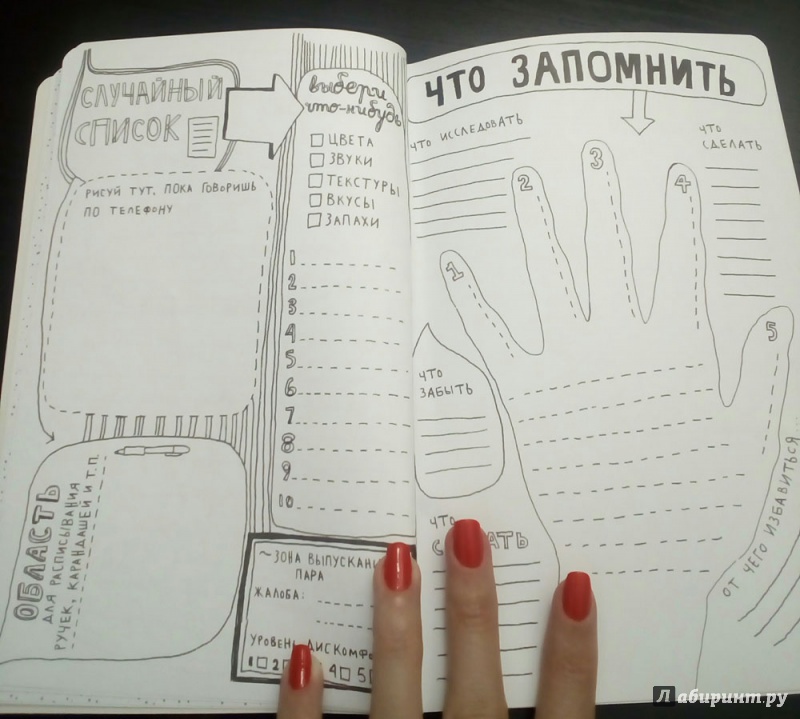 СЛУЧАЙНЫЙ
СПИСОК
РИСУЙ ТУТ, ПОКА ГОВОРИШЬ
ПО ТЕЛЕФОНУ
ОБЛАСТЬ
ДЛЯ РАСПИСЫВАНИЯ
РУЧЕК, КАРАНДАШЕЙ И Т.П.
выбери
что-нибудь
ЦВЕТА
ЗВУКИ
ТЕКСТУРЫ
ВКУСЫ
ЗАПАХИ
1
2
3
4
5
6
7
8
9
10
~ЗОНА ВЫПУСКАНИ
ПАРА
ЖАЛОБА:
УРОВЕНЬ ДИСКОМФО
1 2 4 5
ЧТО ЗАПОМНИТЬ
ЧТО ИССЛЕДОВАТЬ
ЧТО
СДЕЛАТЬ
1
2
3
4
5
ЧТО
ЗАБЫТЬ
ЧТО
ОТ ЧЕГО ИЗБАВИТЬСЯ...
Лабиринт.ру